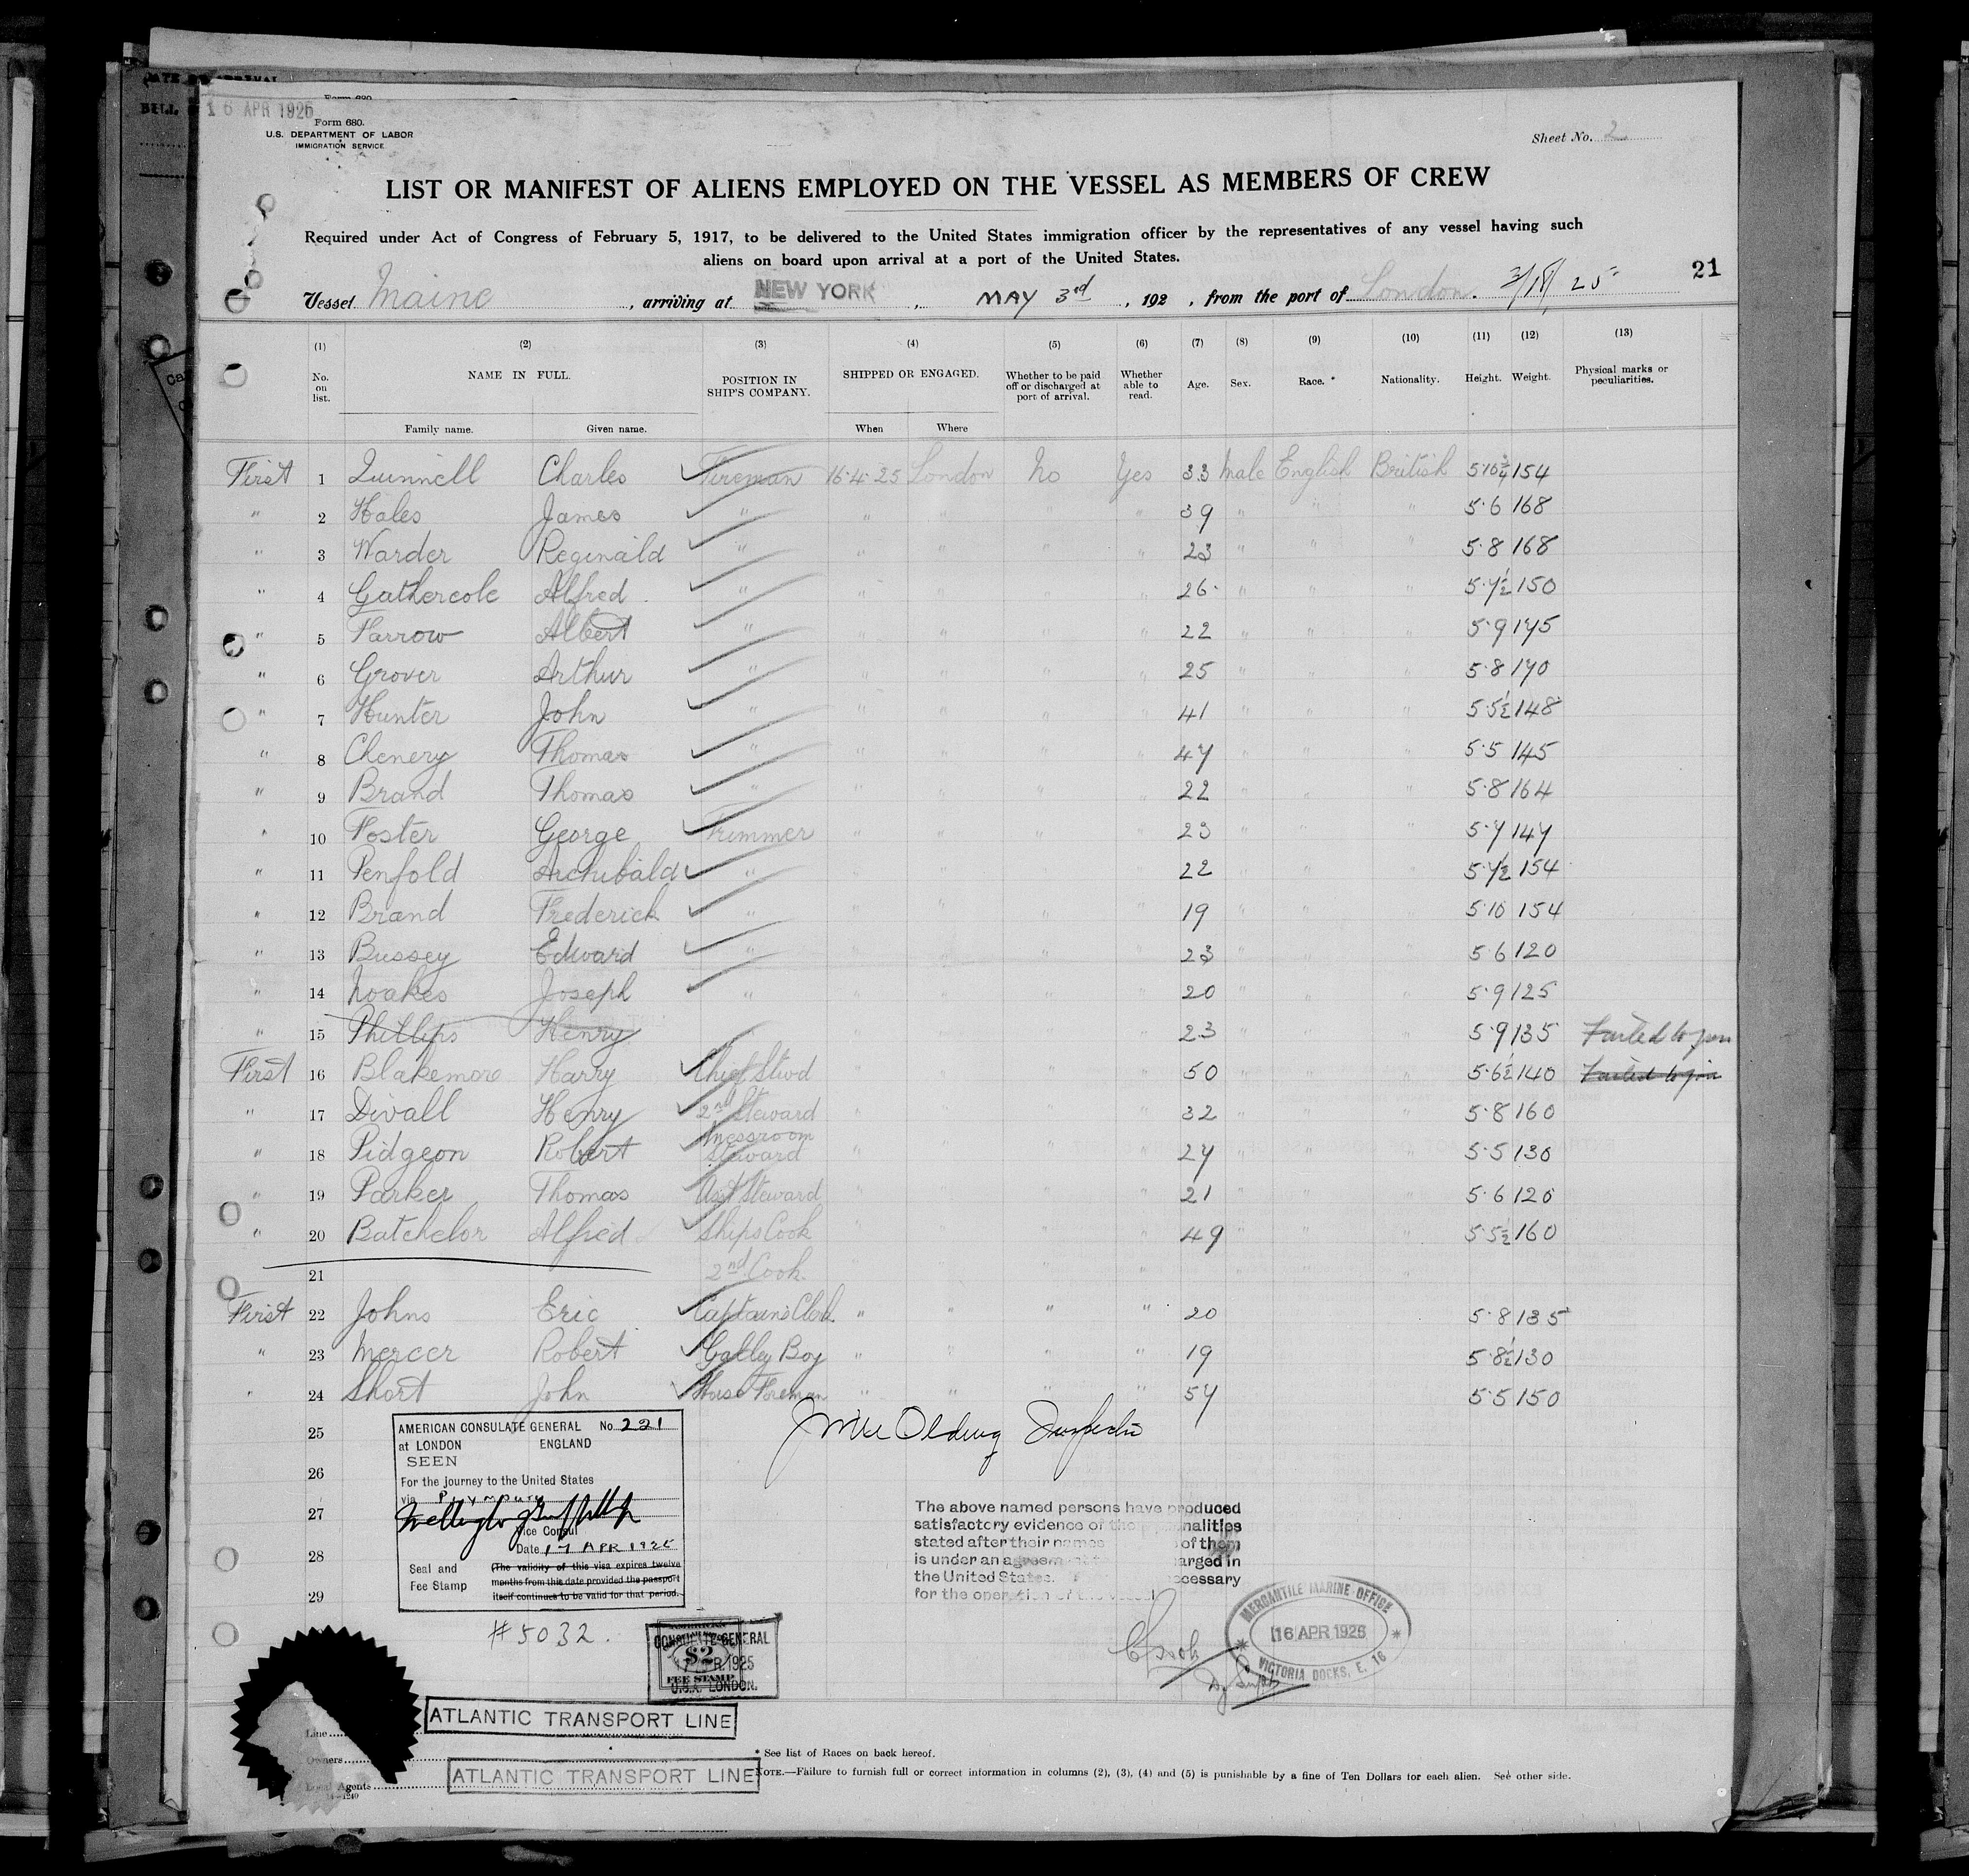 16 APR 1925
Form 680.
U.S. DEPARTMENT OF LABOR
IMMIGRATION SERVICE
Sheet No. 2
LIST OR MANIFEST OF ALIENS EMPLOYED ON THE VESSEL AS MEMBERS OF CREW
Required under Act of Congress of February 5, 1917, to be delivered to the United States immigration officer by the representatives of any vessel having such
aliens on board upon arrival at a port of the United States.
21
Vessel Maine, arriving at NEW YORK, MAY 3rd, 192 , from the port of London.
(1) (2) (3) (4) (5) (6) (7) (8) (9) (10) (11) (12) (13)
No. on list. NAME IN FULL. POSITION IN SHIP'S COMPANY. SHIPPED OR ENGAGED. Whether to be paid off or discharged at port of arrival. Whether able to read. Age. Sex. Race. * Nationality. Height. Weight. Physical marks or peculiarities.
Family name. Given name. When Where
First 1 Quinnell Charles Fireman 16·4·25 London No Yes 33 Male English British 5·10¾ 154
" 2 Hales James " " " " " 39 " " " 5·6 168
" 3 Warder Reginald " " " " " 23 " " " 5·8 168
" 4 Gathercole Alfred " " " " " 26 " " " 5·7½ 150
" 5 Farrow Albert " " " " " 22 " " " 5·9 175
" 6 Grover Arthur " " " " " 25 " " " 5·8 170
" 7 Hunter John " " " " " 41 " " " 5·5½ 148
" 8 Chenery Thomas " " " " " 47 " " " 5·5 145
" 9 Brand Thomas " " " " " 22 " " " 5·8 164
" 10 Foster George Trimmer " " " " 23 " " " 5·7 147
" 11 Penfold Archibald " " " " " 22 " " " 5·7½ 154
" 12 Brand Frederick " " " " " 19 " " " 5·10 154
" 13 Bussey Edward " " " " " 23 " " " 5·6 120
" 14 Noakes Joseph " " " " " 20 " " " 5·9 125
" 15 Phillips Henry " " " " 23 " " " 5·9 135 Failed to join
First 16 Blakemore Harry Chief Stwd " " " " 50 " " " 5·6½ 140 Failed to join
" 17 Divall Henry 2nd Steward " " " " 32 " " " 5·8 160
" 18 Pidgeon Robert Messroom Steward " " " " 27 " " " 5·5 130
" 19 Parker Thomas Asst Steward " " " " 21 " " " 5·6 120
" 20 Batchelor Alfred Ships Cook " " " " 49 " " " 5·5½ 160
21 2nd Cook " " " " " " "
First 22 Johns Eric Captains Clerk " " " " 20 5·8 135
" 23 Mercer Robert Galley Boy " " " " 19 5·8½ 130
" 24 Short John Horse Foreman " " " " 57 5·5 150
25
26
27
28
29
AMERICAN CONSULATE GENERAL No. 221
at LONDON ENGLAND
SEEN
For the journey to the United States
via Plymouth
Vice Consul
Date 17 APR 1925
Seal and Fee Stamp
(The validity of this visa expires twelve
months from this date provided the passport
itself continues to be valid for that period.
The above named persons have produced
satisfactory evidence of the nationalities
stated after their names of them
is under an agreement arged in
the United States. necessary
for the operation of the vessel
#5032.
CONSULATE GENERAL
$2
17 APR. 1925
FEE STAMP
U.S.A. LONDON.
MERCANTILE MARINE OFFICE
16 APR 1925
VICTORIA DOCKS, E. 16
Line
ATLANTIC TRANSPORT LINE
Owners
Local Agents
ATLANTIC TRANSPORT LINE
* See list of Races on back hereof.
NOTE.—Failure to furnish full or correct information in columns (2), (3), (4) and (5) is punishable by a fine of Ten Dollars for each alien. See other side.